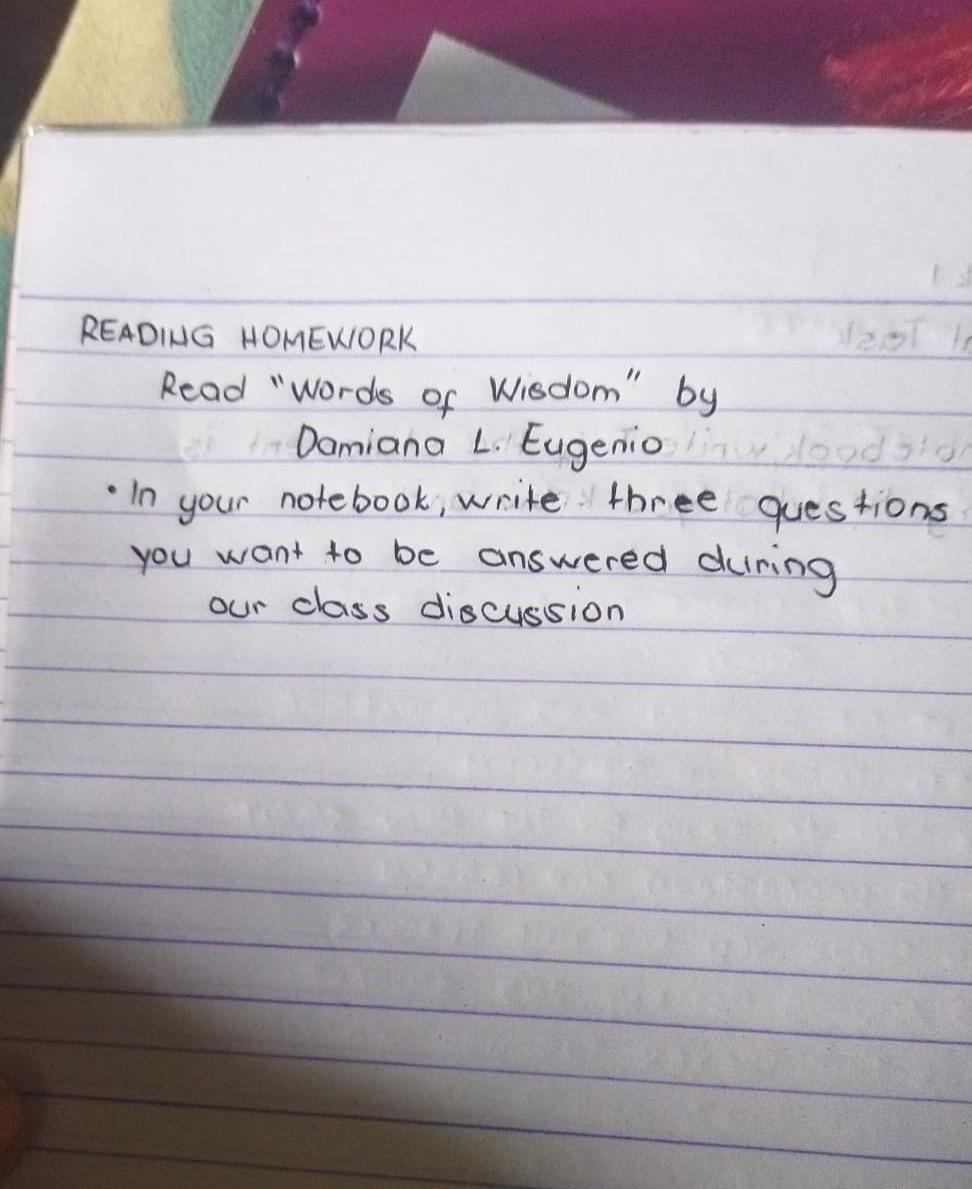 READING HOMEWORK
Read "Words of Wisdom" by
Damiana L. Eugenio
• In your notebook, write three questions
you want to be answered during
our class discussion